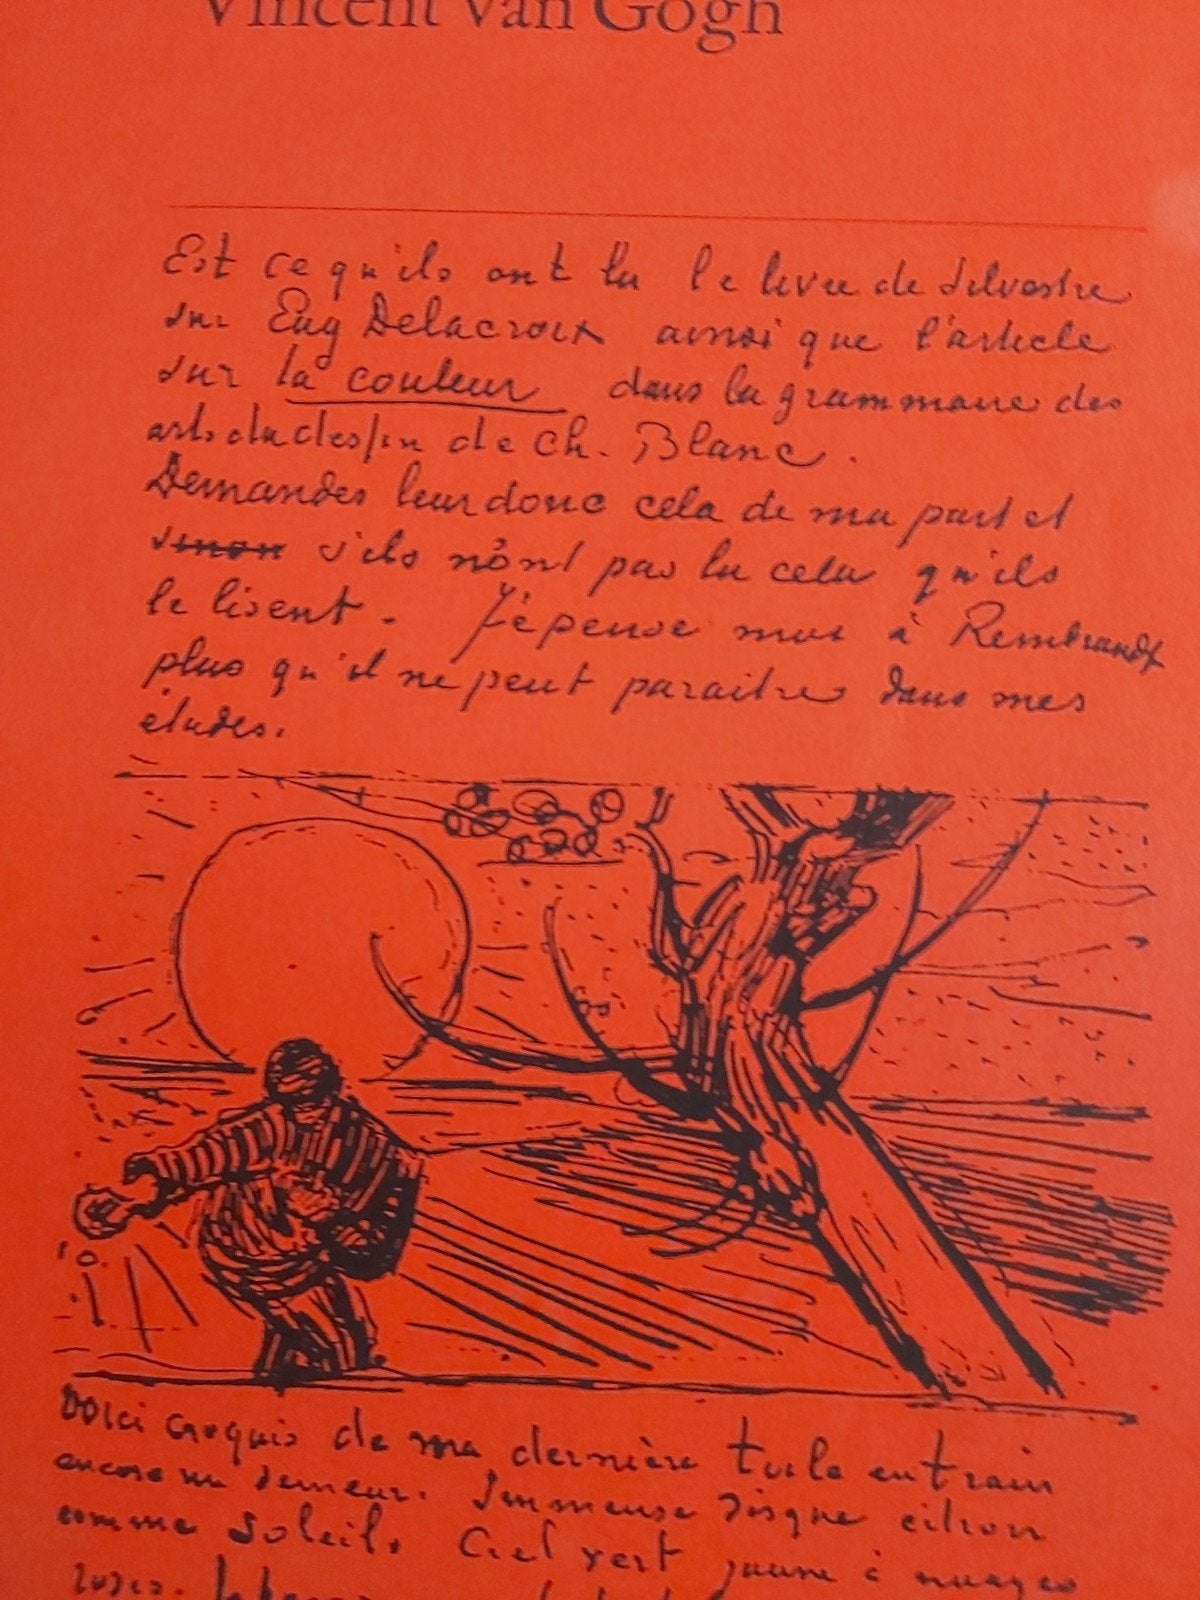 Vincent van Gogh
Est ce qu'ils ont lu le livre de Silvestre
sur Eug Delacroix ainsi que l'article
sur la couleur dans la grammaire des
arts du dessin de Ch. Blanc.
Demandes leur donc cela de ma part et
sinon s'ils n'ont pas lu cela qu'ils
le lisent. Je pense moi à Rembrandt
plus qu'il ne peut paraitre dans mes
études.
Voici croquis de ma dernière toile en train
encore un semeur. Immense disque citron
comme soleil. Ciel vert jaune à nuages
roses.